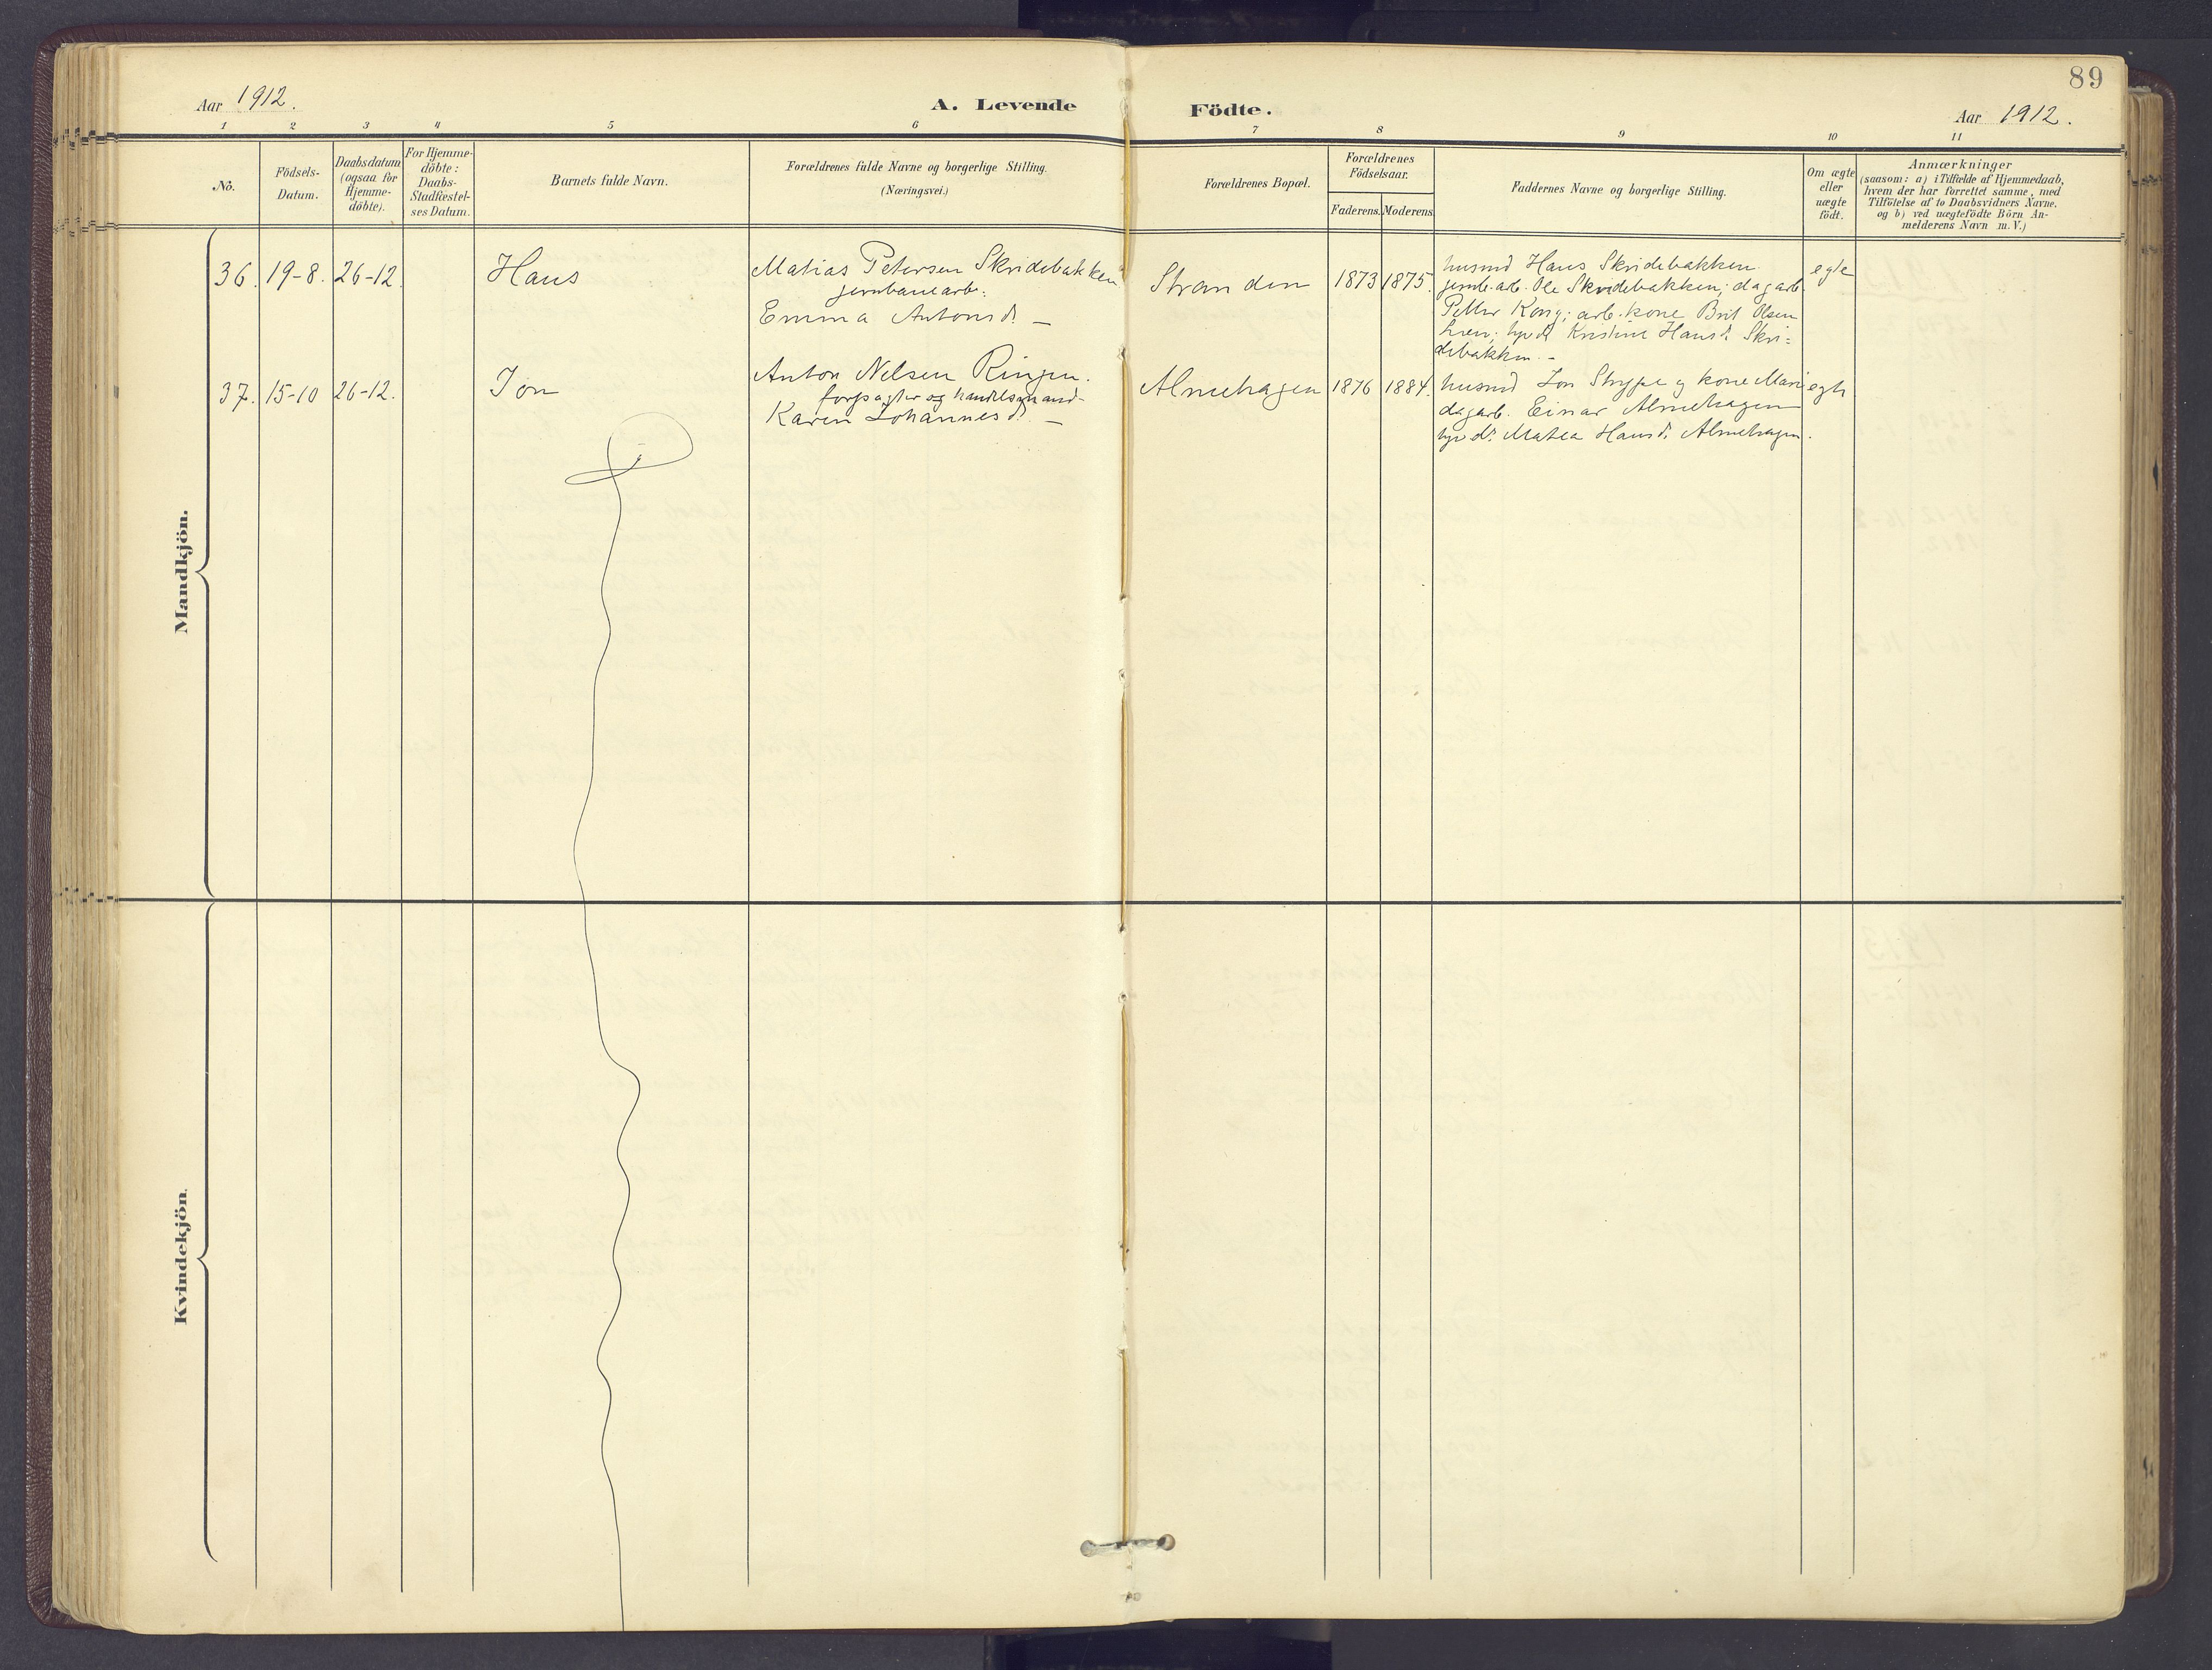 89
Aar 1912.
A. Levende Födte.
Aar 1912.
1 2 3 4 5 6 7 8 9 10 11
No.
Födsels-
Datum.
Daabsdatum
(ogsaa for
Hjemme-
döbte).
For Hjemme-
döbte:
Daabs-
Stadfæstel-
ses Datum.
Barnets fulde Navn.
Forældrenes fulde Navne og borgerlige Stilling.
(Næringsvei.)
Forældrenes Bopæl.
Forældrenes
Födselsaar.
Faderens. Moderens.
Faddernes Navne og borgerlige Stilling.
Om ægte
eller
uægte
födt.
Anmærkninger
(saasom: a) i Tilfælde af Hjemmedaab,
hvem der har forrettet samme, med
Tilföielse af to Daabsvidners Navne,
og b) ved uægtefödte Börn An-
melderens Navn m. V.)
Mandkjön.
36. 19-8. 26-12. Hans
Matias Petersen Skridebakken
jernbanearb.
Emma Antonsd. —
Stranden 1873 1875.
husmd Hans Skridebakken
jernb.arb. Ole Skridebakken; dagarb.
Petter Kong; arb. kone Brit Olsen
Kristine Hansd. Skri-
debakken. —
egte
37. 15-10 26-12. Jon
Anton Nelsen Ringen.
forpagter og handelsmand
Karen Johannesd. —
Almehagen 1876 1884.
husmd Jon Strype og kone Mari
dagarb. Einar Almehagen
Matea Hansd. Almehagen.
egte
Kvindekjön.